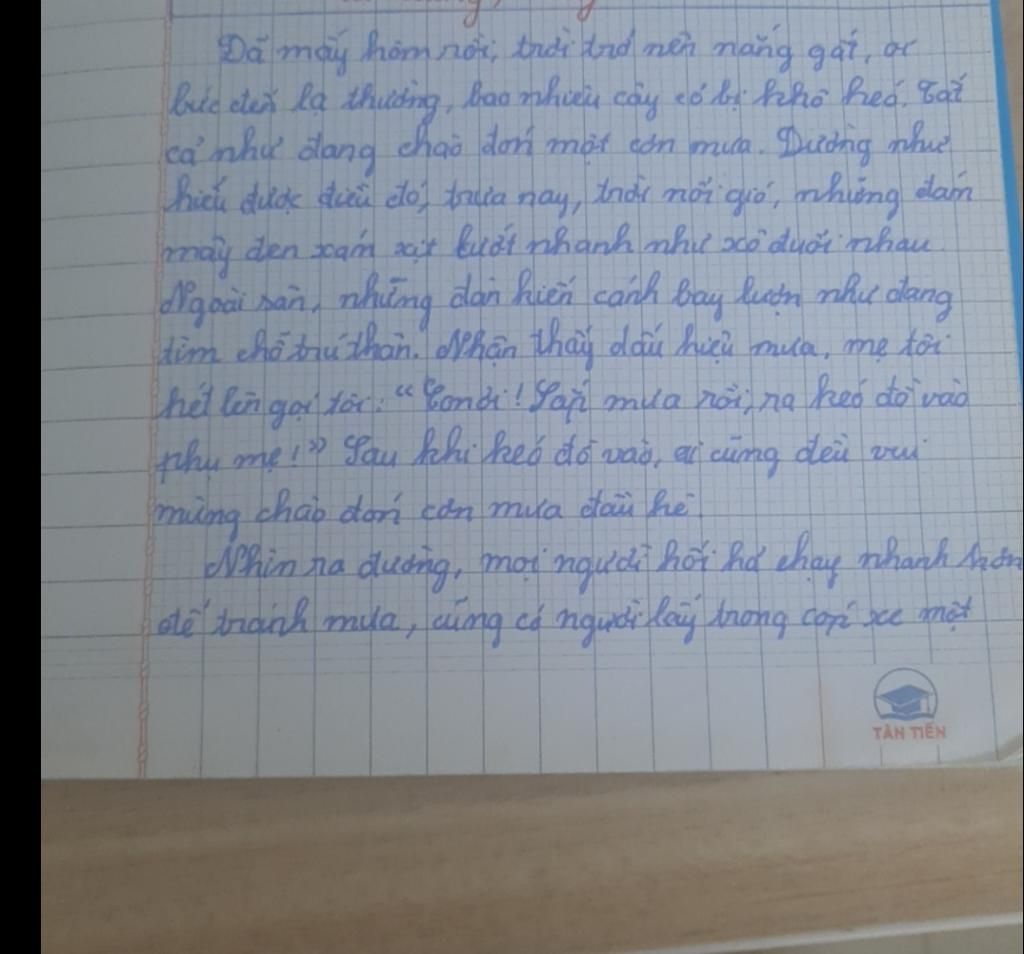 Đã mấy hôm nồi, trời trở nên nắng gắt, oi
bức đến lạ thường, bao nhiêu cây cỏ bị khô héo. Tất
cả như đang chào đón một cơn mưa. Dường như
hiểu được điều đó, trưa nay, trời nổi gió, những đám
mây đen xám xịt lướt nhanh như xô đuổi nhau
Ngoài sân, những đàn kiến cánh bay lượn như đang
tìm chỗ trú thân. Nhận thấy dấu hiệu mưa, mẹ tôi
hét lên gọi tôi: "Con ơi! Sắp mưa rồi, ra kéo đồ vào
phụ mẹ!" Sau khi kéo đồ vào, ai cũng đều vui
mừng chào đón cơn mưa đầu hè.
Nhìn ra đường, mọi người hối hả chạy nhanh hơn
để tránh mưa, cũng có người lấy trong cốp xe một
TÂN TIẾN